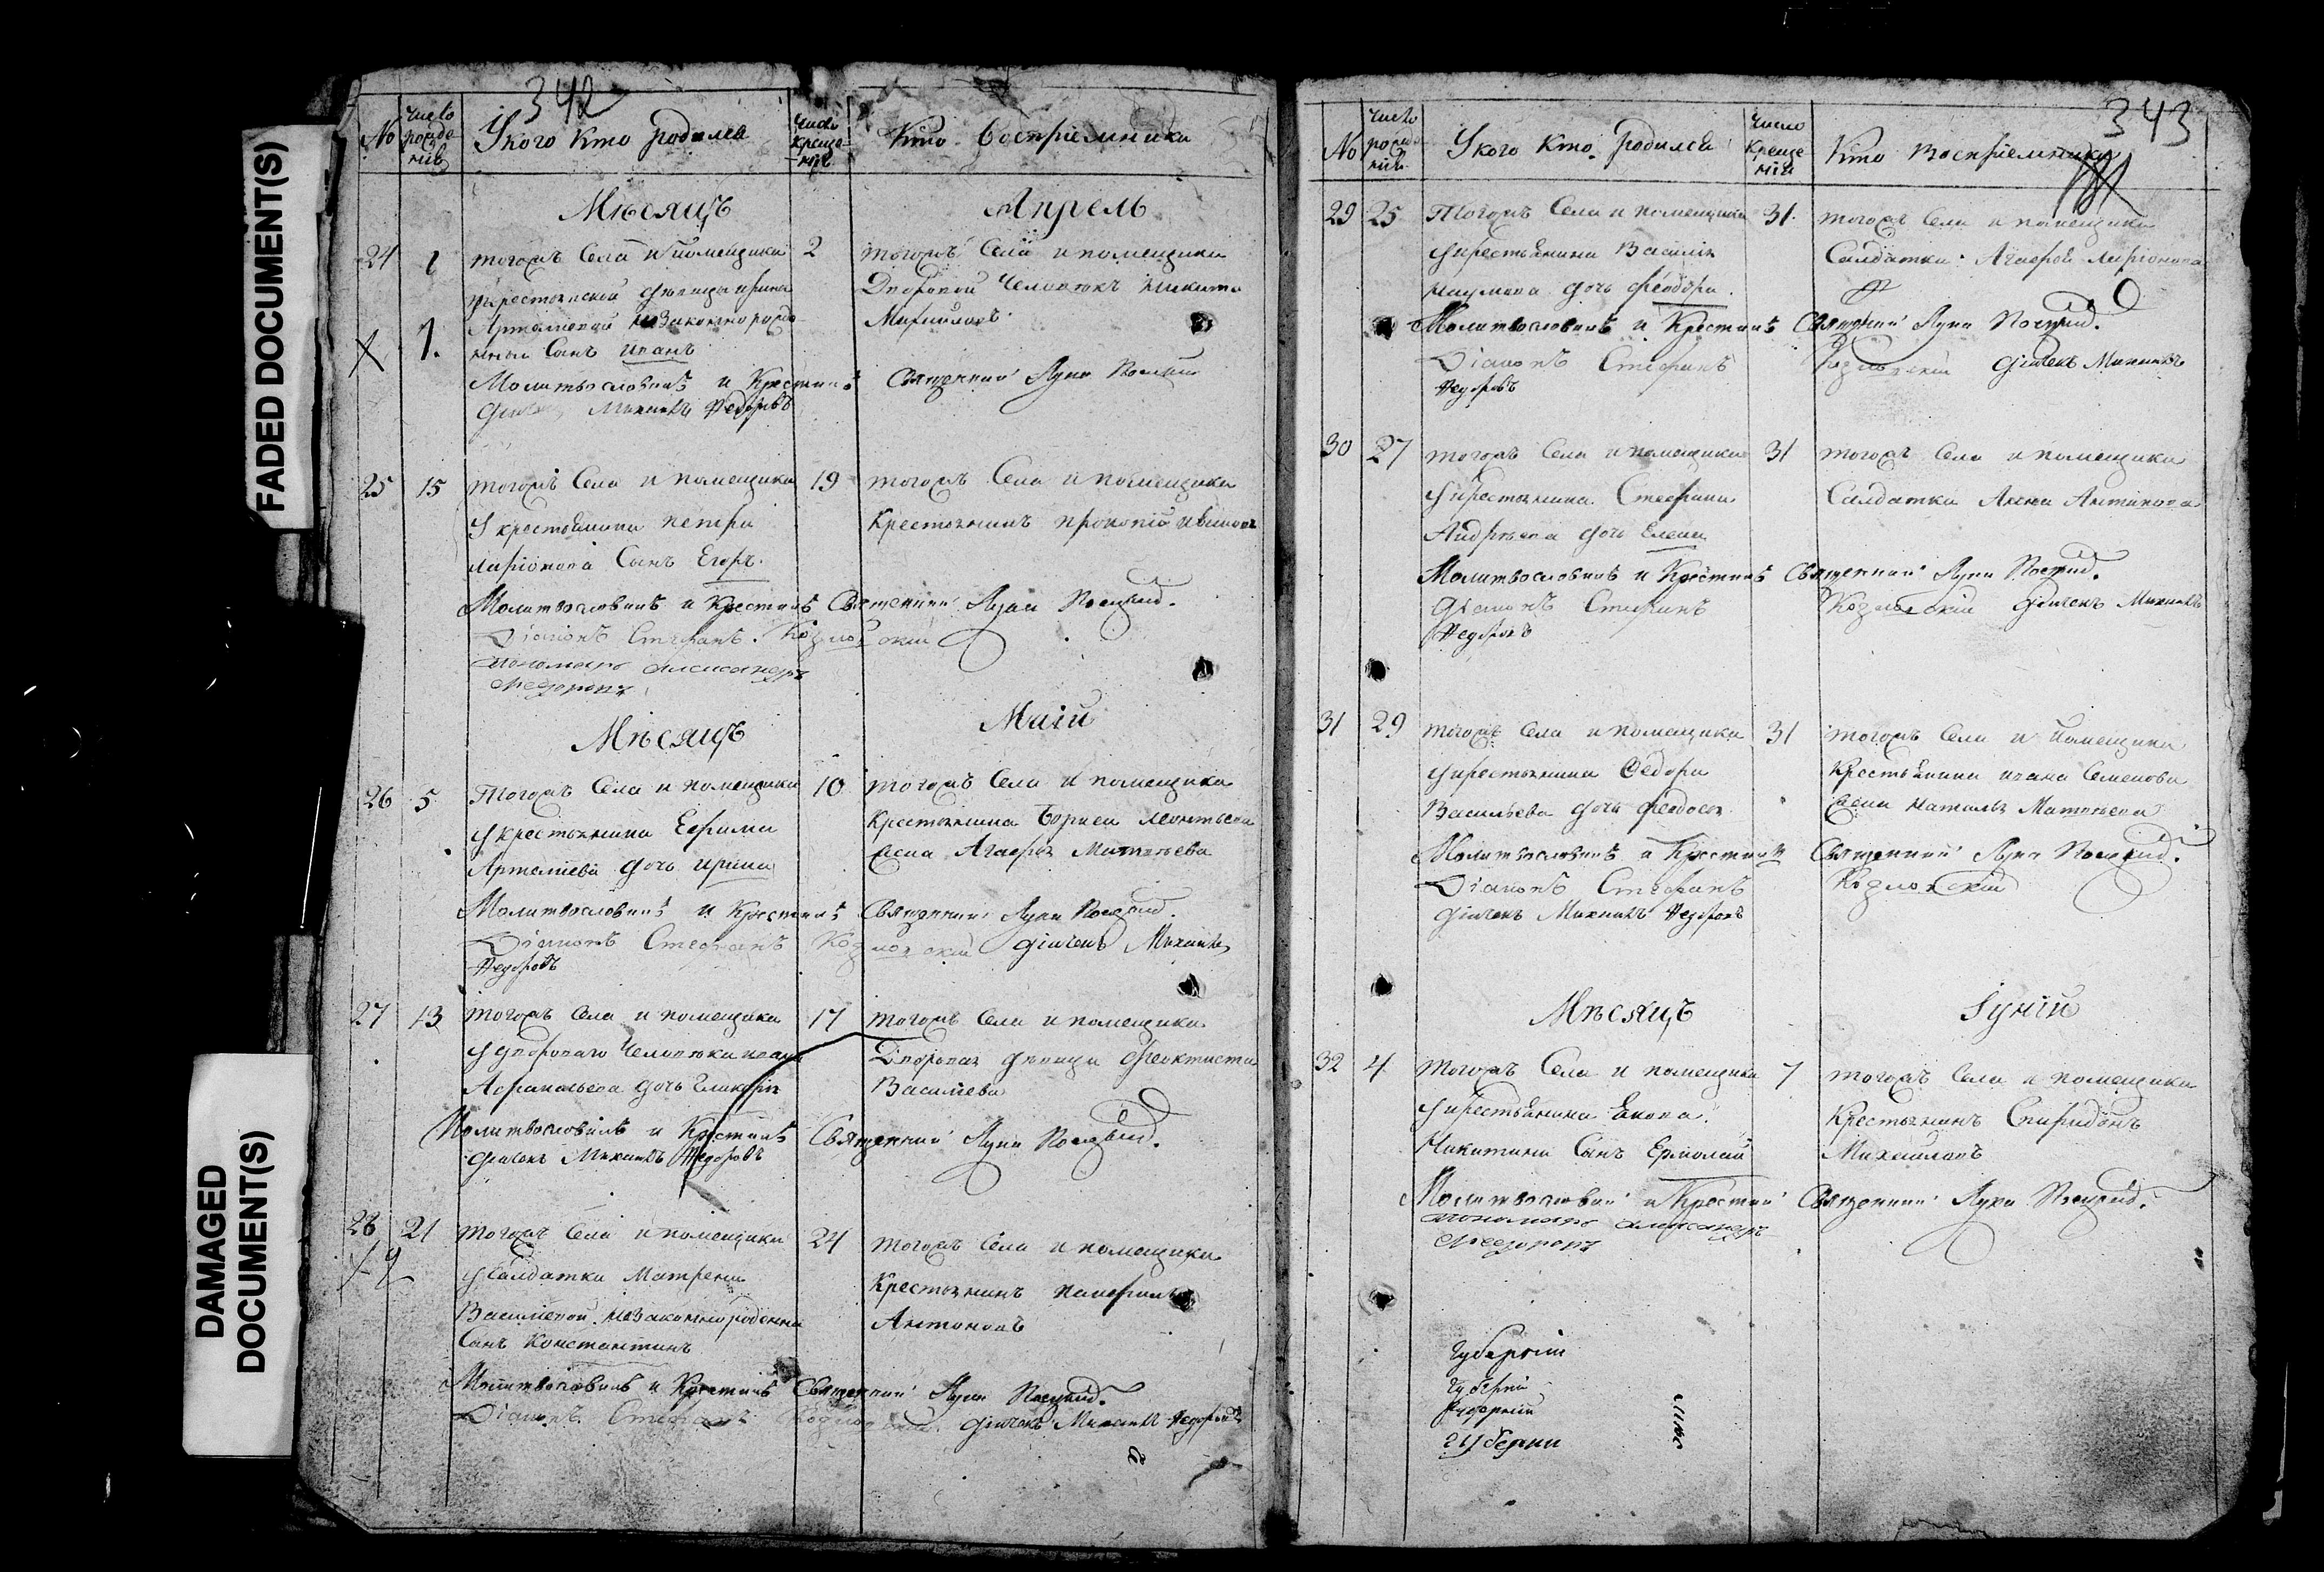 FADED DOCUMENT(S)
DAMAGED
DOCUMENT(S)
342
No
число рожде нія
У кого кто родился
число креще нія
Кто восприемники
Мѣсяцъ Апрель
24 1 тогожъ села и помещика 2 тогожъ села и помещика
крестьянской девицы ирины Дворовой человекъ никита
Артамоновой незаконнорожде Михайловъ
нной сынъ иванъ
Молитвословилъ и крестилъ Священникъ Лука
дьячекъ Михаилъ Федоровъ
25 15 тогожъ села и помещика 19 тогожъ села и помещика
У крестьянина петра Крестьянинъ прокопій
ларіонова сынъ Егоръ.
Молитвословилъ и крестилъ Священникъ Лука
Діаконъ Стефанъ Козловскій
пономарь александръ
Федоровъ
Мѣсяцъ Маій
26 5 Тогожъ села и помещика 10 тогожъ села и помещика
У крестьянина Ефима Крестьянина бориса леонтьева
Артеміева дочь ирина жена Агафья Матвеева
Молитвословилъ и крестилъ Священникъ Лука
Діаконъ Стефанъ Козловскій дьячекъ Михаилъ
Федоровъ
27 13 тогожъ села и помещика 17 тогожъ села и помещика
У дворового человека ивана Дворовая девица Феоктиста
Афанасьева дочь гликерія Василиева
Молитвословилъ и крестилъ Священникъ Лука
дьячекъ Михаилъ Федоровъ
28 21 тогожъ села и помещика 24 тогожъ села и помещика
У салдатки Матрены Крестьянинъ
Василиевой незаконнорожденны Антоновъ
сынъ константинъ
Молитвословилъ и крестилъ Священникъ Лука
Діаконъ Стефанъ Козловскій дьячекъ Михаилъ Федоровъ
343
No
число рожде нія
У кого кто родился
число креще нія
Кто восприемники
29 25 Тогожъ села и помещика 31 тогожъ села и помещика
У крестьянина Василія Салдатка Агафья ларіонова
наумова дочь феодора
Молитвословилъ и крестилъ Священникъ Лука
Діаконъ Стефанъ Козловскій дьячекъ Михаилъ
Федоровъ
30 27 тогожъ села и помещика 31 тогожъ села и помещика
У крестьянина Стефана Салдатка Анна Антипова
Андреева дочь Елена
Молитвословилъ и крестилъ Священникъ Лука
Діаконъ Стефанъ Козловскій дьячекъ Михаилъ
Федоровъ
31 29 тогожъ села и помещика 31 тогожъ села и помещика
У крестьянина Федора Крестьянина ивана Семенова
Васильева дочь феодосья жена наталья Матвеева
Молитвословилъ и крестилъ Священникъ Лука
Діаконъ Стефанъ Козловскій
дьячекъ Михаилъ Федоровъ
Мѣсяцъ Іуній
32 4 тогожъ села и помещика 7 тогожъ села и помещика
У крестьянина Крестьянинъ Спиридонъ
Никитина сынъ Ермолай Михайловъ
Молитвословилъ и крестилъ Священникъ Лука
пономарь александръ
Федоровъ
Губерніи
Губерніи
Губерніи
Губерни